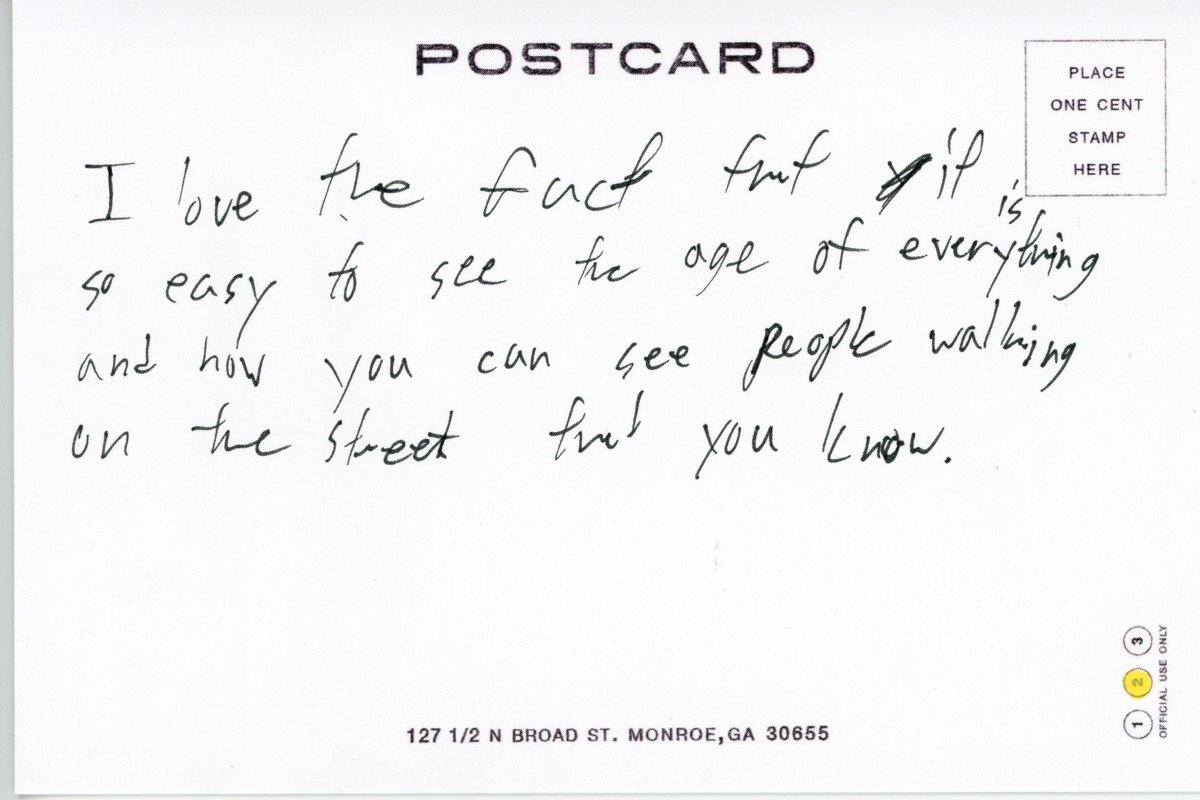 POSTCARD
PLACE
ONE CENT
STAMP
HERE
I love the fact that it is
so easy to see the age of everything
and how you can see people walking
on the street that you know.
127 1/2 N BROAD ST. MONROE, GA 30655
1 2 3
OFFICIAL USE ONLY